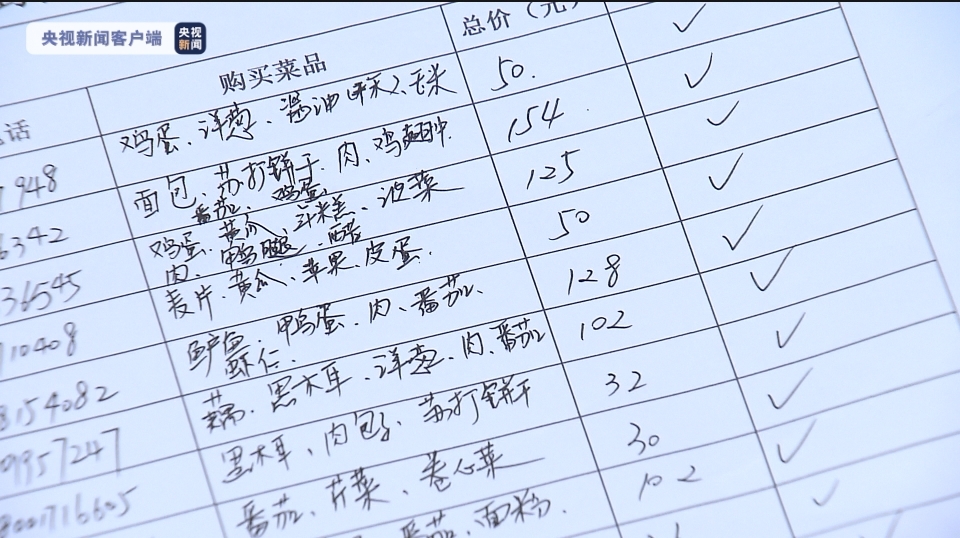 央视新闻客户端 央视新闻
话 购买菜品 总价（元）
鸡蛋、洋葱、 油 、玉米 50.
948 面包、苏打饼干、肉、鸡翅中 154
番茄、鸡蛋
6342 鸡蛋、黄瓜、 米糕、油菜 125
肉、鸭腿、醋
36545 麦片、黄瓜、苹果、皮蛋. 50
10408 鲈鱼、鸭蛋、肉、番茄、 128
虾仁.
8154082 藕、黑木耳、洋葱、肉、番茄 102
01957247 黑木耳、肉包子、苏打饼干 32
8001716605 番茄、芹菜、卷心菜 30
番茄、面粉. 102